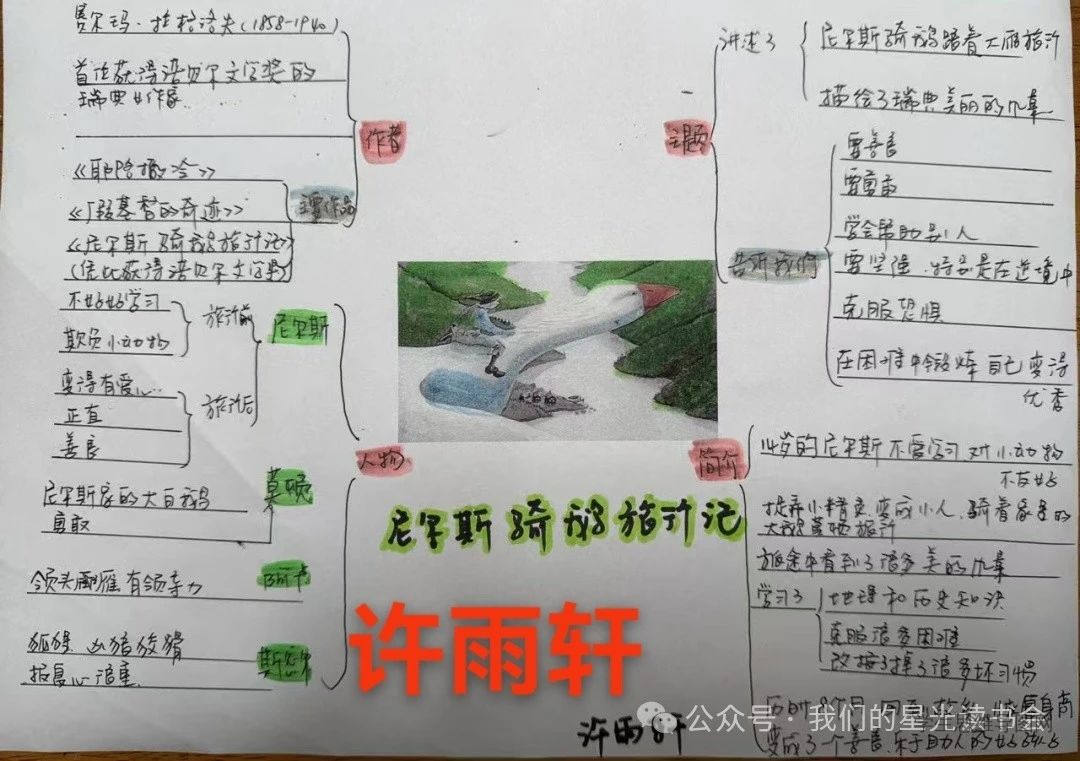 赛尔玛·拉格洛夫(1858-1940)
首位获得诺贝尔文学奖的
瑞典女作家
作者
《耶路撒冷》
《假基督的奇迹》
《尼尔斯骑鹅旅行记》
(凭此获得诺贝尔文学奖)
主要作品
不好好学习
欺负小动物
旅行前
变得有爱心
正直
善良
旅行后
尼尔斯
人物
尼尔斯家的大白鹅
勇敢
莫顿
领头雁 有领导力
阿卡
狐狸 凶猎狡猾
报复心
斯密尔
主题
讲述了
尼尔斯骑鹅踏着大雁旅行
描绘了瑞典美丽的风景
告诉我们
要善良
要勇敢
学会帮助别人
要坚强、特别是在逆境中
克服恐惧
在困难中锻炼自己变得
优秀
简介
14岁的尼尔斯不爱学习 对小动物
不友好
捉弄小精灵、变成小人、骑着家里的
大鹅莫顿旅行
旅途中看到了诸多美的风景
学习了
地理和历史知识
克服诸多困难
改掉了诸多坏习惯
历时8个月
变成了一个善良、乐于助人的好孩子
尼尔斯骑鹅旅行记
许雨轩
许雨轩
公众号·我们的星光读书会